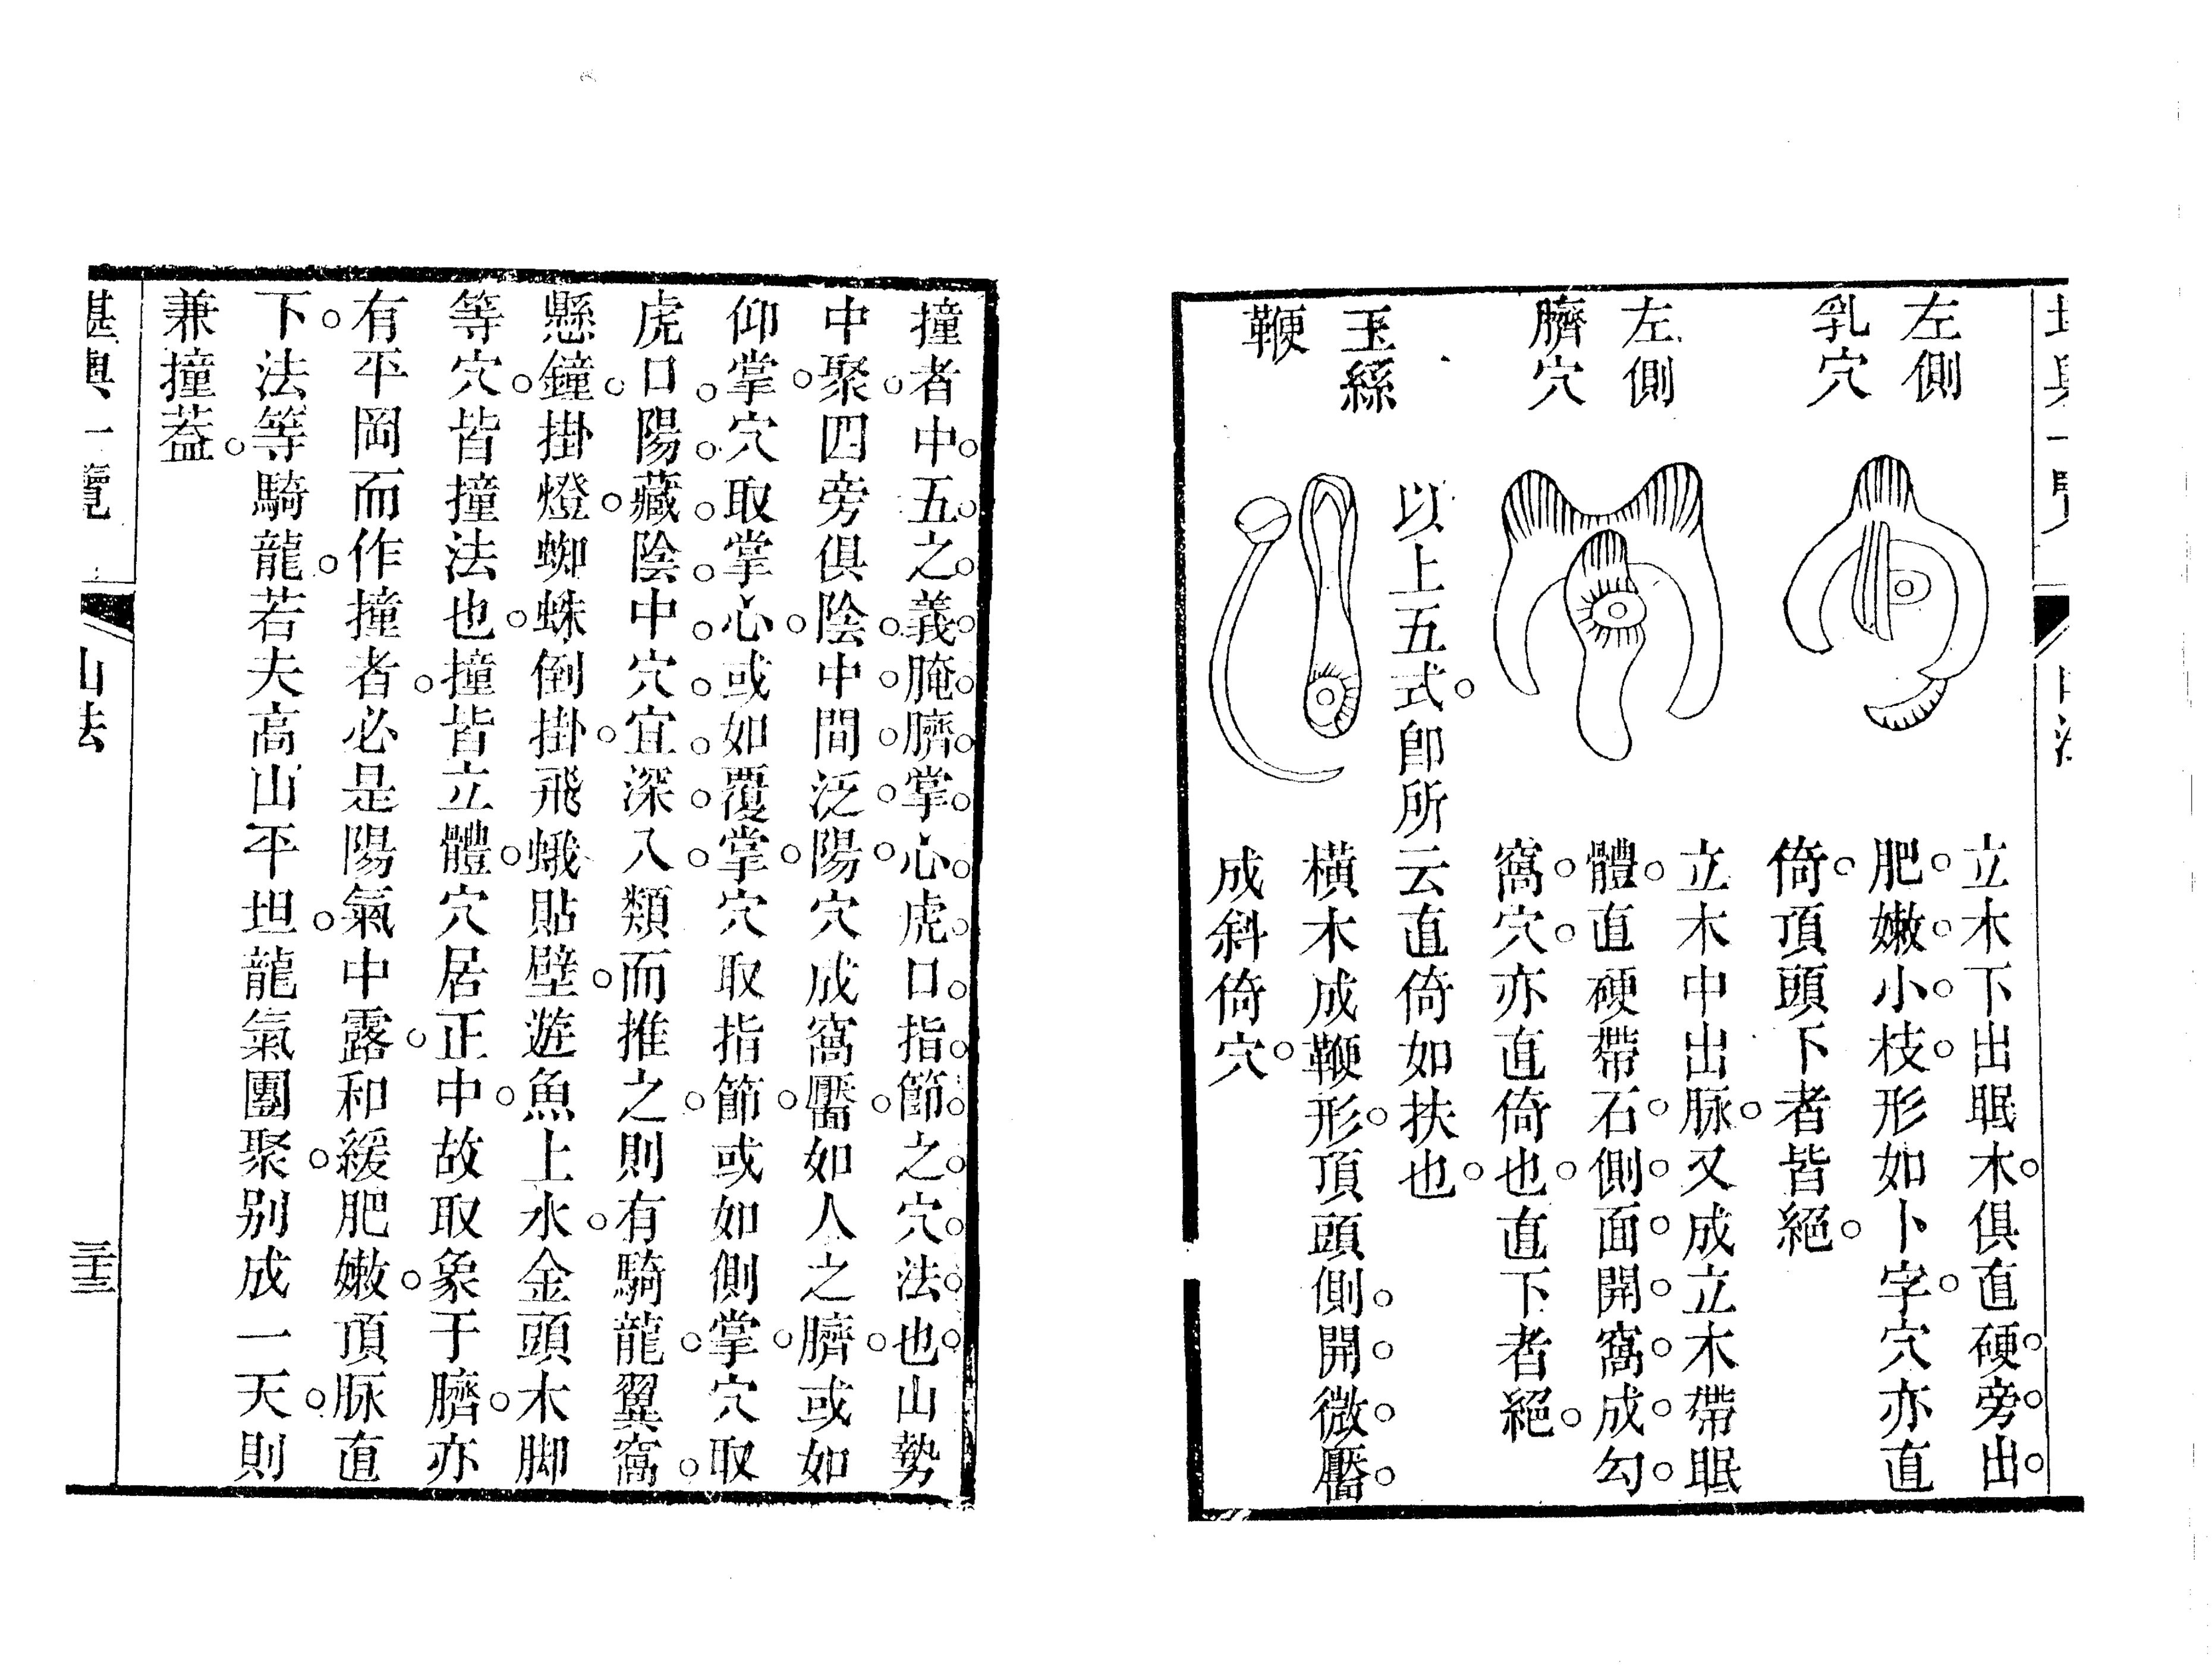 左側
乳穴
立木下出眠木俱直硬旁出
肥嫩小枝形如卜字穴亦直
倚頂頭下者皆絕
左側
臍穴
立木中出脉又成立木帶眠
體直硬帶石側面開窩成勾
窩穴亦直倚也直下者絕
以上五式卽所云直倚如扶也
玉絲
鞭
橫木成鞭形頂頭側開微靨
成斜倚穴
撞者中五之義腌臍掌心虎口指節之穴法也山勢
中聚四旁俱陰中間泛陽穴成窩靨如人之臍或如
仰掌穴取掌心或如覆掌穴取指節或如側掌穴取
虎口陽藏陰中穴宜深入類而推之則有騎龍翼窩
懸鐘掛燈蜘蛛倒掛飛蛾貼壁遊魚上水金頭木脚
等穴皆撞法也撞皆立體穴居正中故取象于臍亦
有平岡而作撞者必是陽氣中露和緩肥嫩頂脉直
下法等騎龍若夫高山平坦龍氣團聚别成一天則
兼撞葢
堪輿一覽
山法
三十三